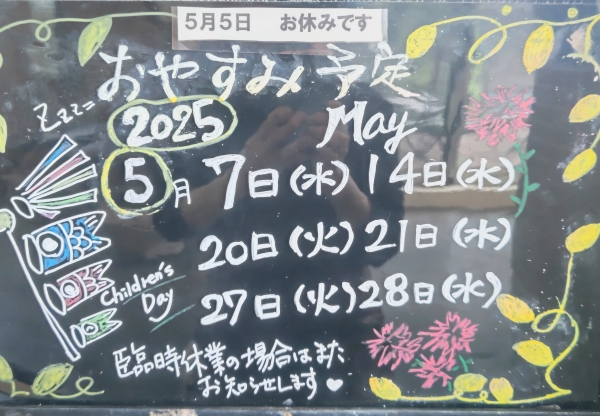 5月5日 お休みです
おやすみ予定
Zzz=
2025 May
5月 7日(水) 14日(水)
20日(火) 21日(水)
Children's
Day
27日(火) 28日(水)
臨時休業の場合はまた
お知らせします♥